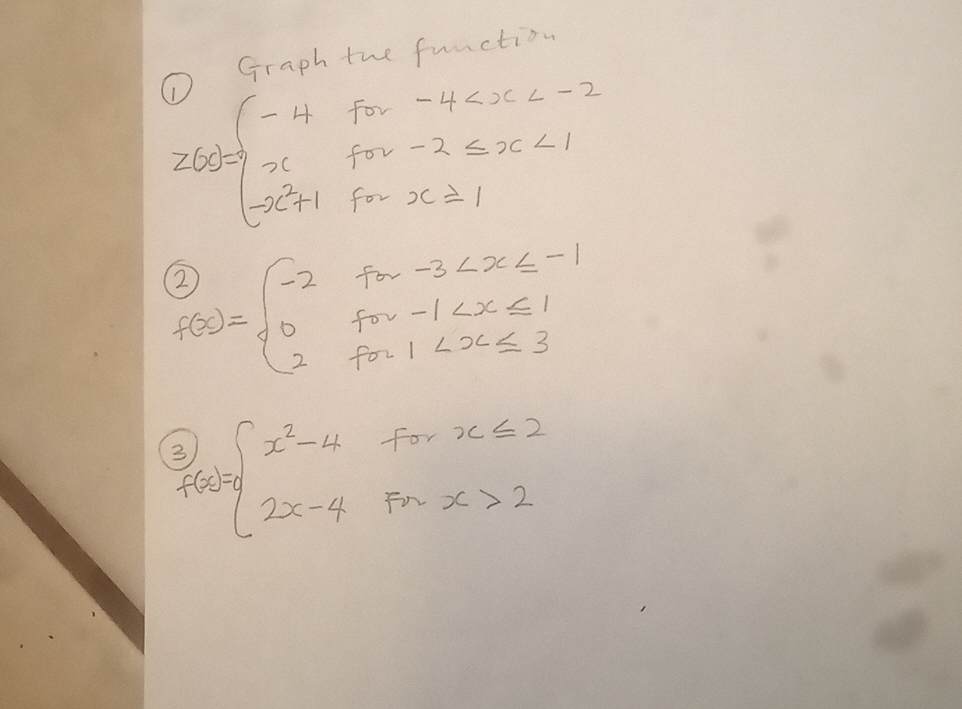 Graph the function
① Z(x)= { -4 for -4<x<-2
x for -2≤x<1
-x²+1 for x≥1
② f(x)= { -2 for -3<x≤-1
0 for -1<x≤1
2 for 1<x≤3
③ f(x)= { x²-4 for x≤2
2x-4 For x>2